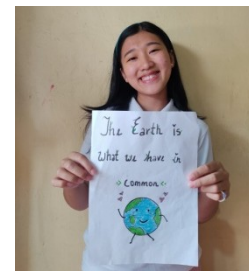 The Earth is
What we have in
common